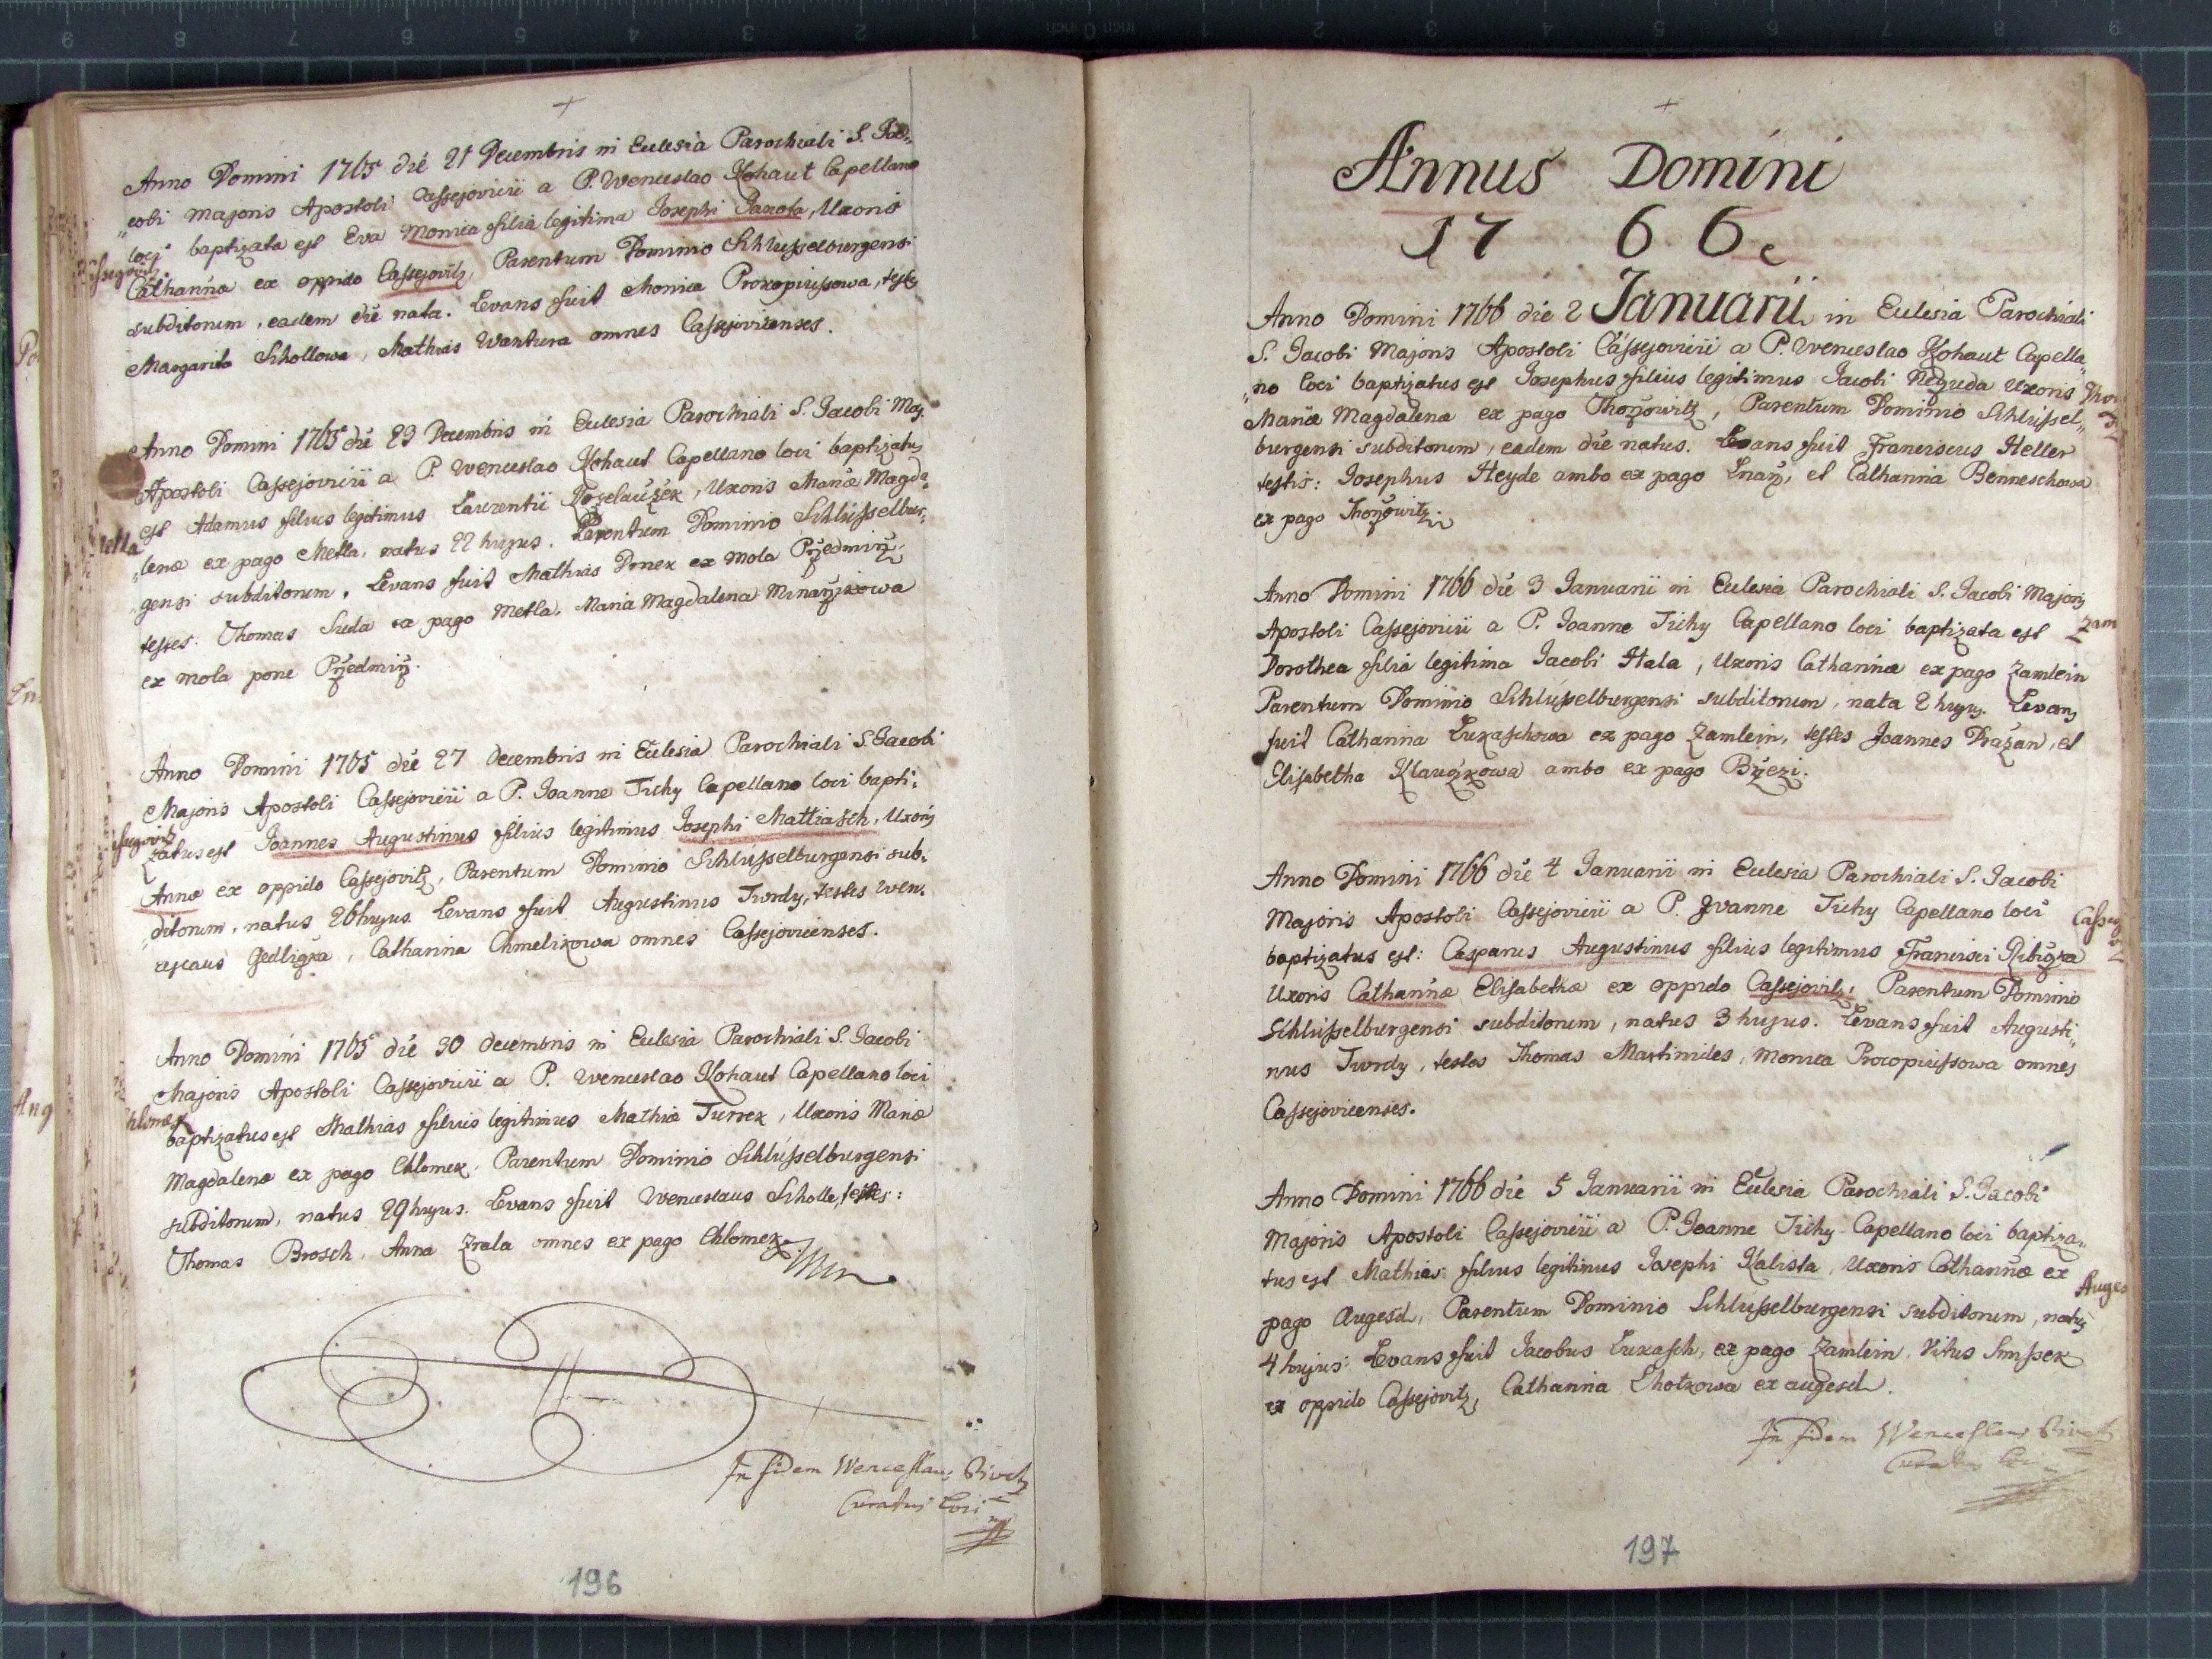 Anno Domini 1765 die 21 Decembris in Eclesia Parochiali S. Jac„
„cobi Majoris Apostoli Cassejovicii a P. Wenceslao Kohaut Capellano
loci baptizata est Eva Monica filia legitima Josephi Janota, Uxoris
Catharina ex oppido Cassejovitz, Parentum Dominio Schlusselburgensi
subditorum, eadem die nata. Levans fuit Monica Prokopiussowa, testes
Margarita Schollowa, Mathias Wantura omnes Cassejovicenses.
Anno Domini 1765 die 23 Decembris in Eclesia Parochiali S. Jacobi Maj.
Apostoli Cassejovicii a P. Wenceslao Kohaut Capellano loci baptizatus
Metla
est Adamus filius legitimus Laurentii, Uxoris Mariæ Magda„
„lenæ ex pago Metla, natus 22 hujus. Parentum Dominio Schlüsselbur„
gensi subditorum. Levans fuit Mathias Drnek ex mola Przedmirz,
testes: Thomas Suda ex pago Metla, Maria Magdalena
ex mola pone Przedmirz.
Anno Domini 1765 die 27 Decembris in Eclesia Parochiali S. Jacobi
Majoris Apostoli Cassejovicii a P. Joanne Tichy Capellano loci bapti„
zatus est Joannes Augustinus filius legitimus Josephi Mattiasch, Uxoris
Annæ ex oppido Cassejovitz, Parentum Dominio Schlüsselburgensi sub„
„ditorum, natus 26 hujus. Levans fuit Augustinus Twrdy, testes Wen„
ceslaus Jedliczka, Catharina Chmelikowa omnes Cassejovicenses.
Anno Domini 1765 die 30 decembris in Eclesia Parochiali S. Jacobi
Majoris Apostoli Cassejovicii a P. Wenceslao Kohaut Capellano loci
hlomek
baptizatus est Mathias filius legitimus Mathiæ Turrek, Uxoris Mariæ
Magdalenæ ex pago Chlomek, Parentum Dominio Schlüsselburgensi
subditorum, natus 29 hujus. Levans fuit Wenceslaus Scholle, testes:
Thomas Brosch, Anna Zrala omnes ex pago Chlomek.
In fidem Wenceslaus
Curatus loci
196
Annus Domini
1766
Anno Domini 1766 die 2 Januarii in Eclesia Parochiali
S. Jacobi Majoris Apostoli Cassejovicii a P. Wenceslao Kohaut Capella„
„no loci baptizatus est Josephus filius legitimus Jacobi Neduda Uxoris
Mariæ Magdalenæ ex pago Thorzowitz, Parentum Dominio Schlüssel„
burgensi subditorum, eadem die natus. Levans fuit Franciscus Heller
testis: Josephus Heyde ambo ex pago Lnarz, et Catharina Benneschowa
ex pago Thorzowitz.
Anno Domini 1766 die 3 Januarii in Eclesia Parochiali S. Jacobi Majoris
Apostoli Cassejovicii a P. Joanne Tichy Capellano loci baptizata est
Zam
Dorothea filia legitima Jacobi Hala, Uxoris Catharinæ ex pago Zamlein
Parentum Dominio Schlüsselburgensi subditorum, nata 2 hujus. Levans
fuit Catharina Lukaschowa ex pago Zamlein, testes Joannes Prazan, et
Elisabetha Klauczkowa ambo ex pago Brzezi.
Anno Domini 1766 die 4 Januarii in Eclesia Parochiali S. Jacobi
Majoris Apostoli Cassejovicii a P. Joanne Tichy Capellano loci
baptizatus est: Casparus Augustinus filius legitimus Francisci Ribiczka
Uxoris Catharinæ Elisabethæ ex oppido Cassejovitz, Parentum Dominio
Schlüsselburgensi subditorum, natus 3 hujus. Levans fuit Augusti„
nus Twrdy, testes Thomas Martinides, Monica Procopiussowa omnes
Cassejovicenses.
Anno Domini 1766 die 5 Januarii in Eclesia Parochiali S. Jacobi
Majoris Apostoli Cassejovicii a P. Joanne Tichy Capellano loci baptiza„
tus est Mathias filius legitimus Josephi Kalista, Uxoris Catharinæ ex
Auges
pago Augesd, Parentum Dominio Schlüsselburgensi subditorum, natus
4 hujus: Levans fuit Jacobus Lukasch, ex pago Zamlein, Vitus
ex oppido Cassejovitz, Catharina Lhotkowa ex augesd.
In fidem Wenceslaus
Curatus loci
197